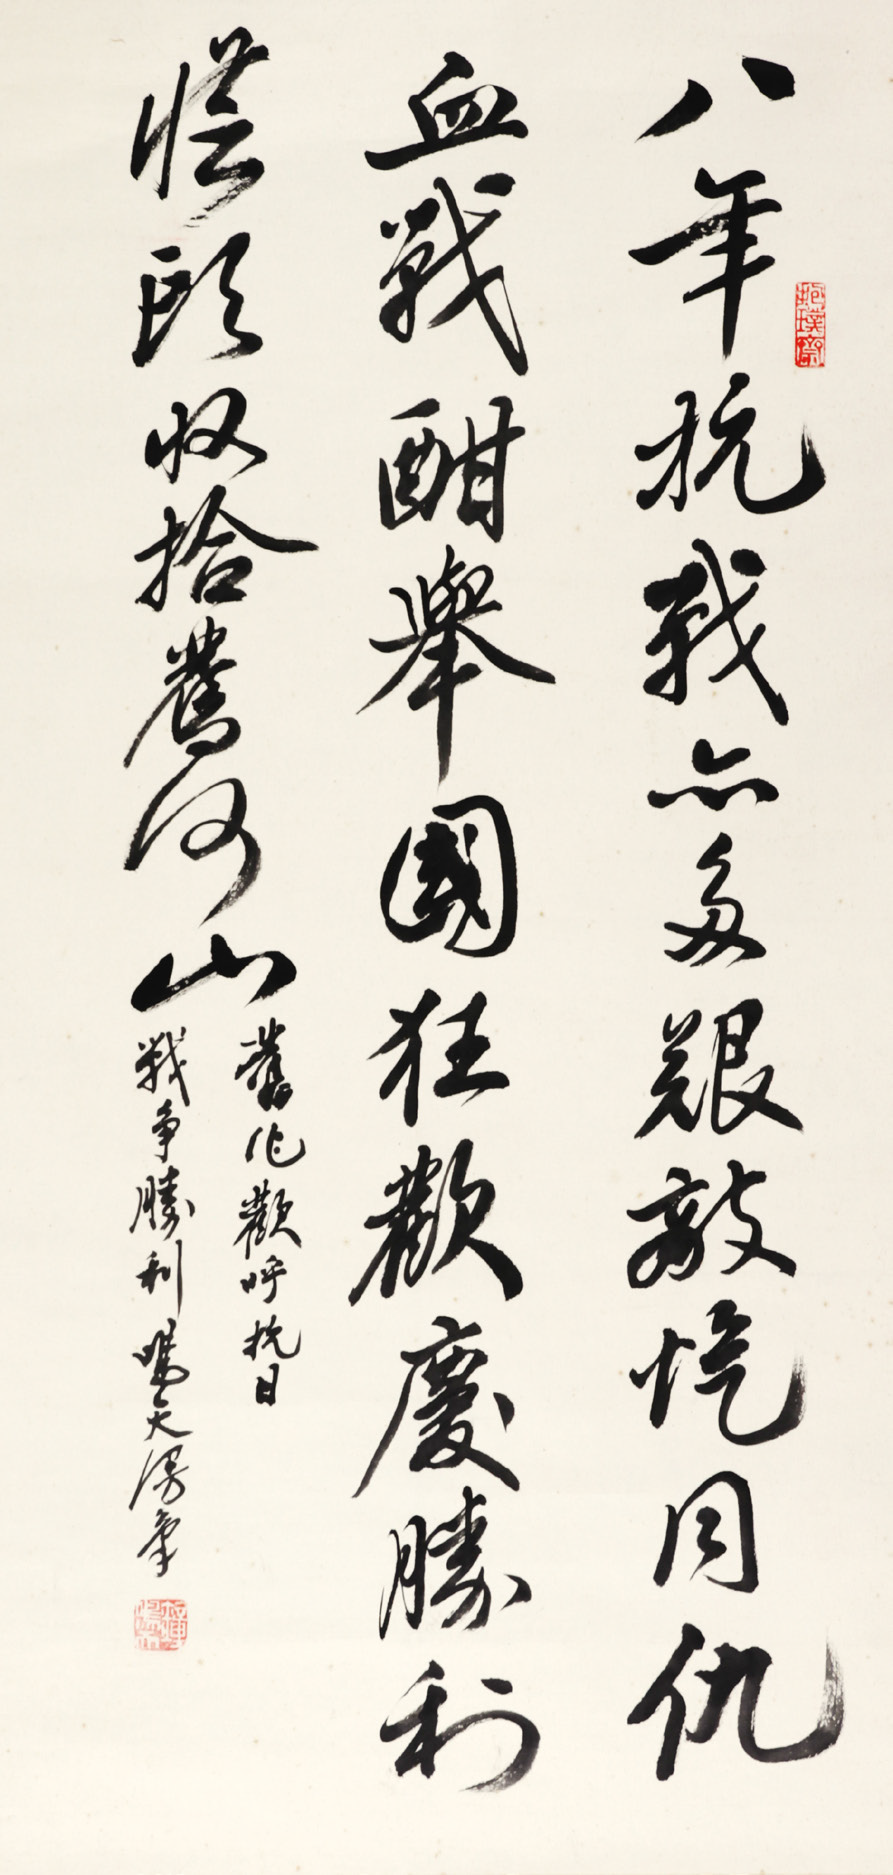 八年抗戰亦多艱敵愾同仇
血戰酣舉國狂歡慶勝利
從頭收拾舊河山
舊作歡呼抗日
戰爭勝利鳴天
抱璞齋